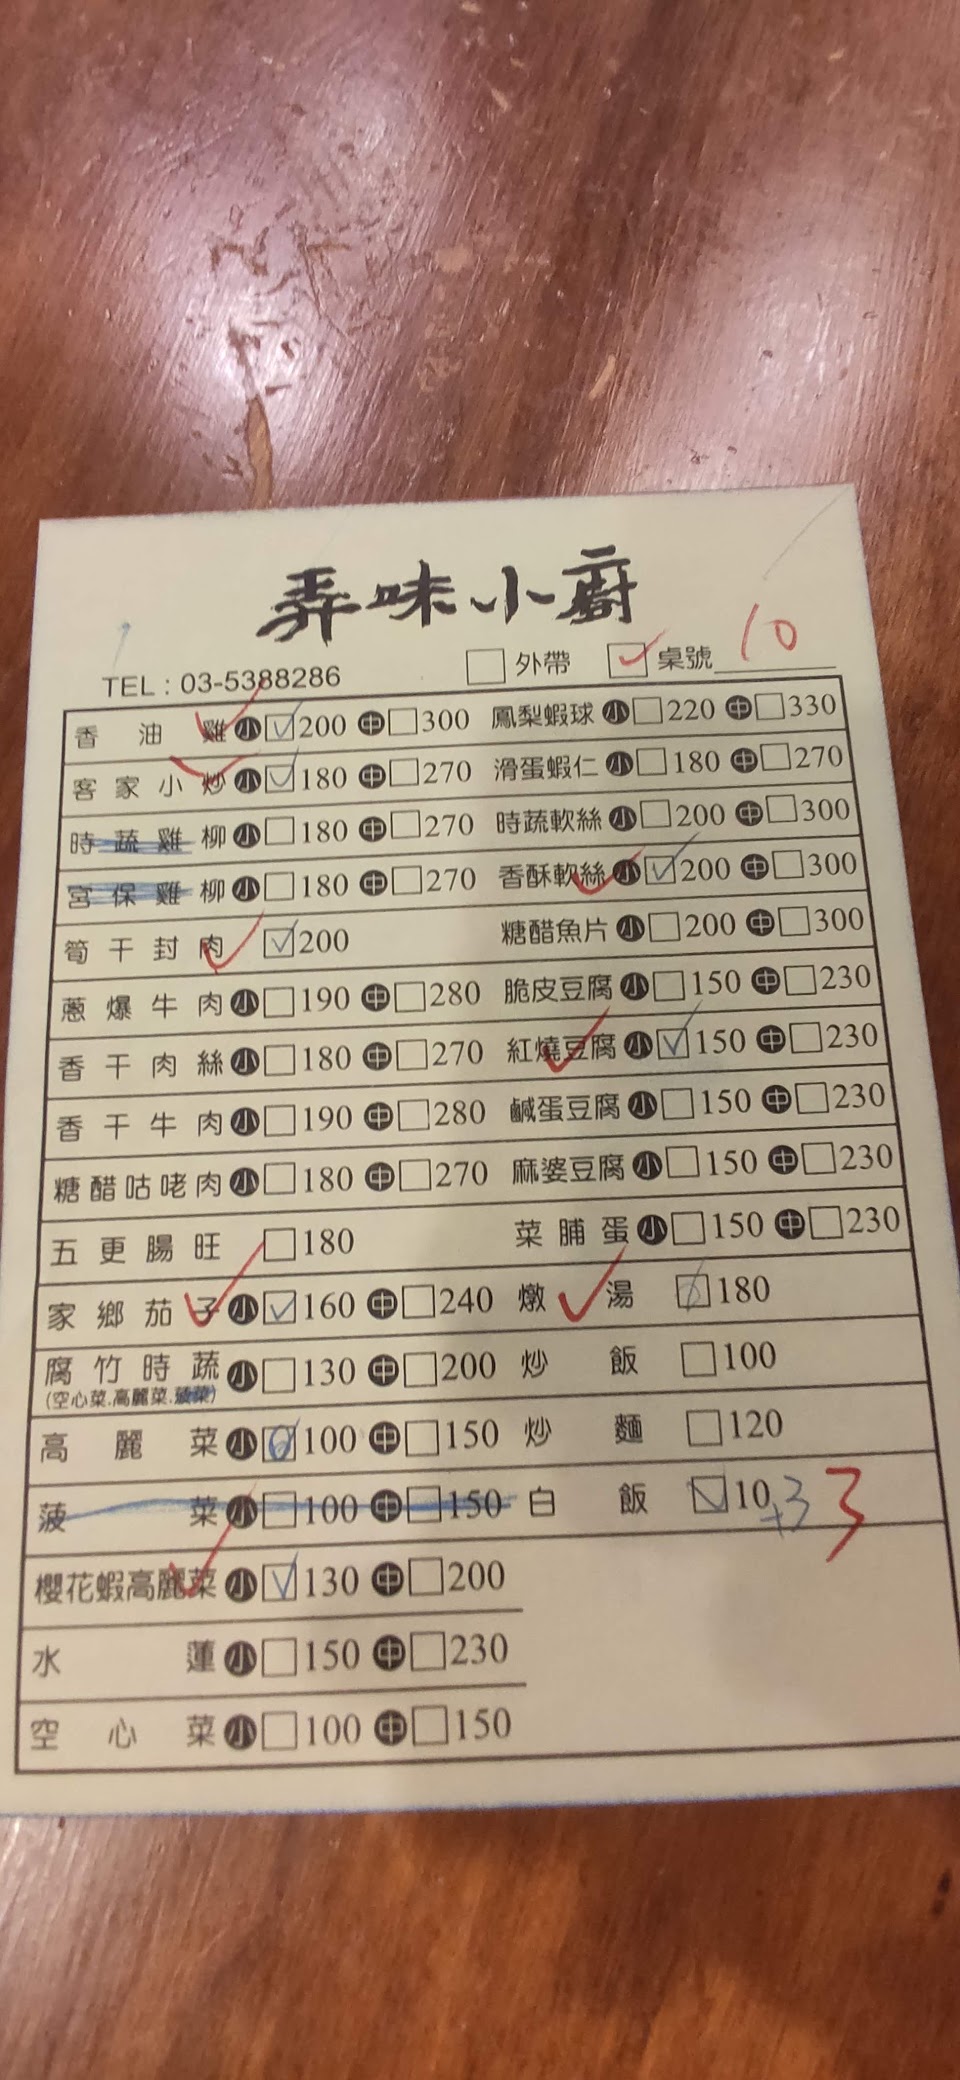 弄味小廚
TEL : 03-5388286 外帶 桌號 10
香油雞 小 200 中 300 鳳梨蝦球 小 220 中 330
客家小炒 小 180 中 270 滑蛋蝦仁 小 180 中 270
時蔬雞柳 小 180 中 270 時蔬軟絲 小 200 中 300
宮保雞柳 小 180 中 270 香酥軟絲 小 200 中 300
筍干封肉 200 糖醋魚片 小 200 中 300
蔥爆牛肉 小 190 中 280 脆皮豆腐 小 150 中 230
香干肉絲 小 180 中 270 紅燒豆腐 小 150 中 230
香干牛肉 小 190 中 280 鹹蛋豆腐 小 150 中 230
糖醋咕咾肉 小 180 中 270 麻婆豆腐 小 150 中 230
五更腸旺 180 菜脯蛋 小 150 中 230
家鄉茄子 小 160 中 240 燉湯 180
腐竹時蔬 小 130 中 200 炒飯 100
(空心菜.高麗菜.菠菜)
高麗菜 小 100 中 150 炒麵 120
菠菜 小 100 中 150 白飯 10 x3 3
櫻花蝦高麗菜 小 130 中 200
水蓮 小 150 中 230
空心菜 小 100 中 150